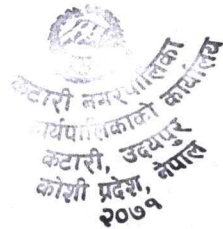 कटारी नगरपालिका
कार्यपालिकाको कार्यालय
कटारी, उदयपुर
कोशी प्रदेश, नेपाल
२०७१